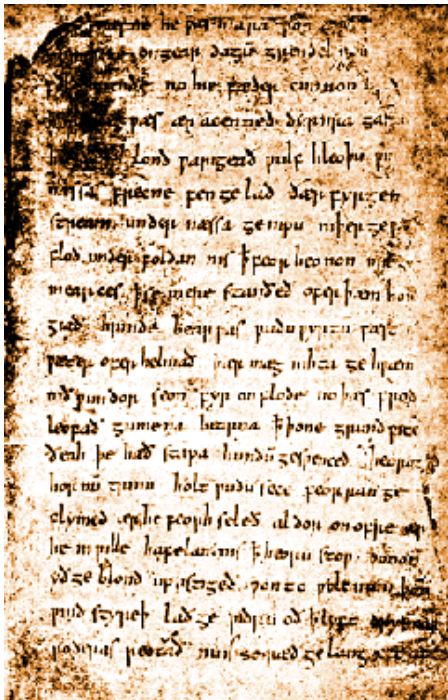 he ƿæs mara þon
geardagū grendel
no hie fæder cunnon
ƿæs ær acenned dyrnra
lond ƿarigeað ƿulf hleoþu
næssas frecne fen gelad ðær fyrgen
stream under næssa genipu niþer geƿ
flod under foldan nis ꝥ feor heonon mil
mearces ꝥ se mere standeð ofer þæm hon
giað hrinde bearƿas ƿudu ƿyrtum fæst
ƿæter ofer helmað þær mæg nihta ge hƿæm
nið ƿundor seon fyr on flode no þæs frod
leofað gumena bearna ꝥ þone grund ƿite
ðeah þe hæð stapa hundū gesƿenced heorot
hornū trum holt ƿudu sece feorran ge
flymed ær he feorh seleð aldor on ofre ær
he in ƿille hafelan nis ꝥ heoru stoƿ þonon
yð ge blond up astigeð ƿon to ƿolcnum þōn
ƿind styreþ lað ge ƿidru oð ꝥ lyft
roderas reotað nu is se ræd ge lang